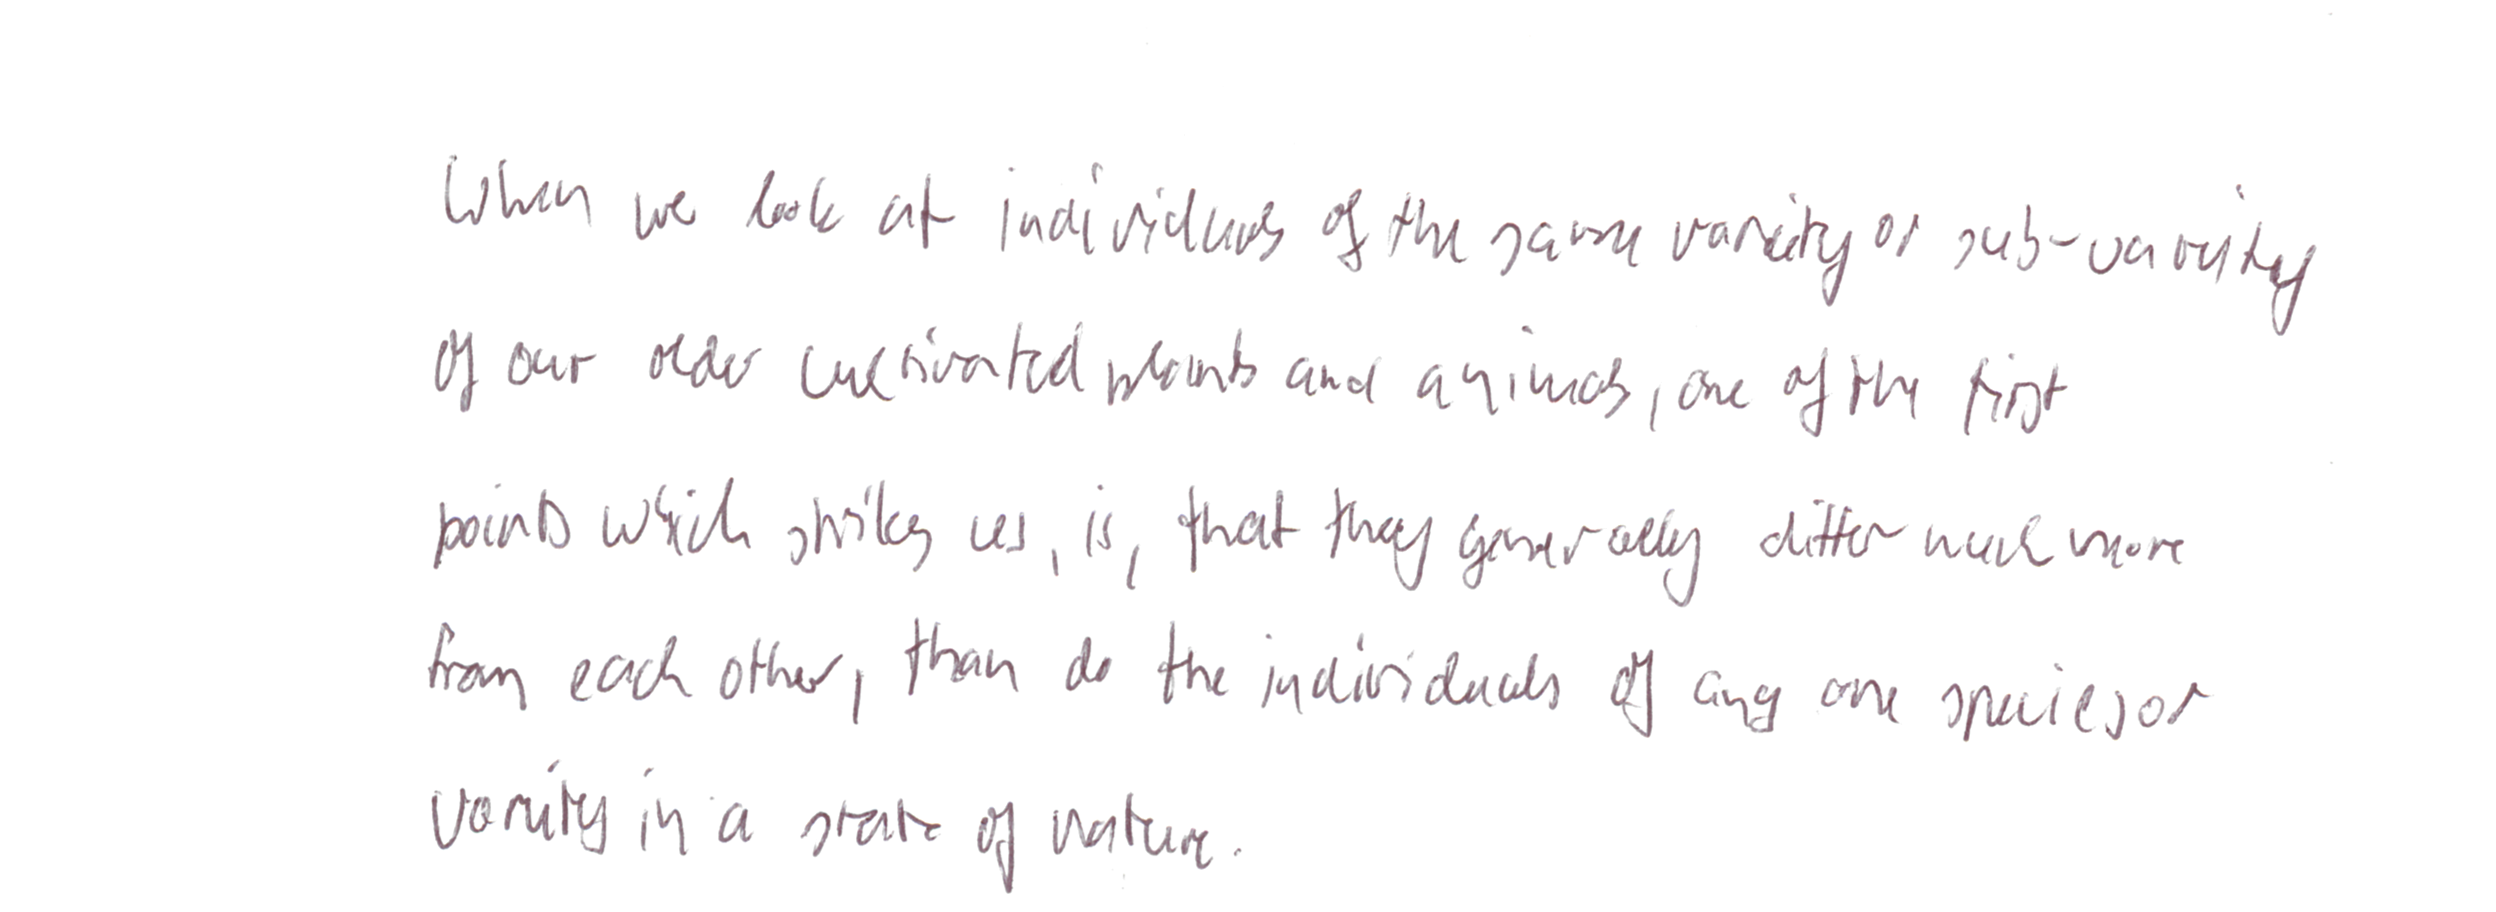 When we look at individuals of the same variety or sub-variety
of our older cultivated plants and animals, one of the first
points which strikes us, is, that they generally differ much more
from each other, than do the individuals of any one species or
variety in a state of nature.